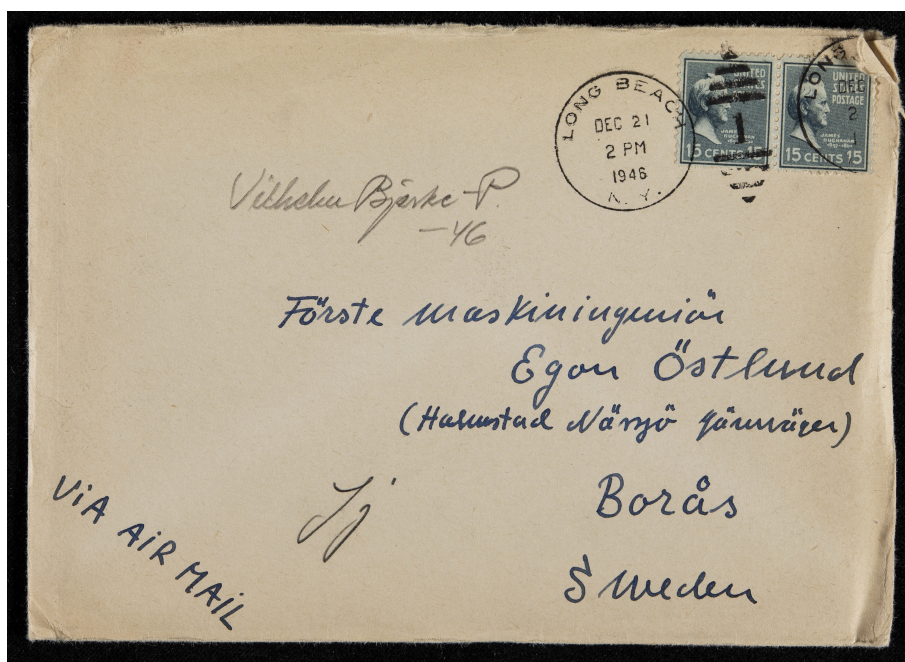 LONG BEACH
DEC 21
2 PM
1946
N. Y.
UNITED STATES
JAMES BUCHANAN
15 CENTS 15
1
UNITED STATES POSTAGE
JAMES BUCHANAN
1857-1861
15 CENTS 15
LONG
DEC
2
1
Vilhelm Bjerke-P.
-46
Förste maskiningeniör
Egon Östlund
(Halmstad Nässjö järnväger)
Borås
Sweden
VIA AIR MAIL